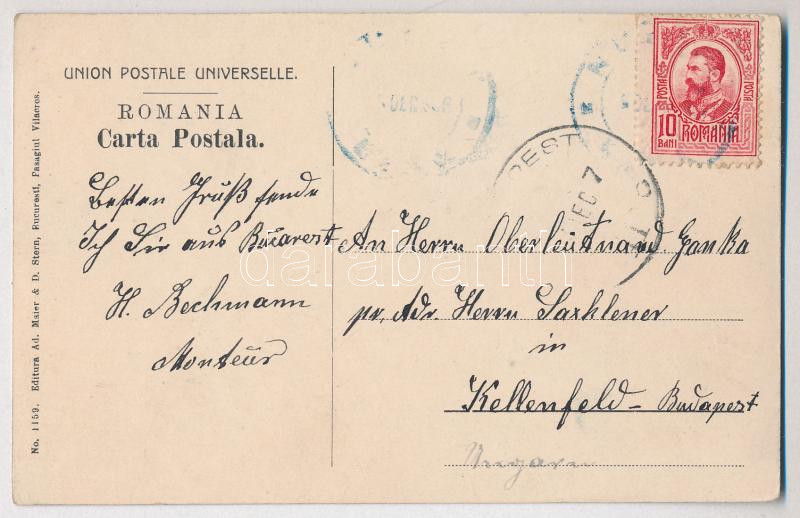 UNION POSTALE UNIVERSELLE.
ROMANIA
Carta Postala.
Besten Gruß sende
Ich Sie aus Bucarest
H. Bechmann
Monteur
An Herrn Oberleutnand Ganka
pr. Adr. Herrn Saxhlener
in
Kellenfeld - Budapest
Ungarn
No. 1159. Editura Ad. Maier & D. Stern, Bucuresti, Pasagiul Vilacros.
POSTA
10
BANI
ROMANIA
PEST
DEC 7
darabanth